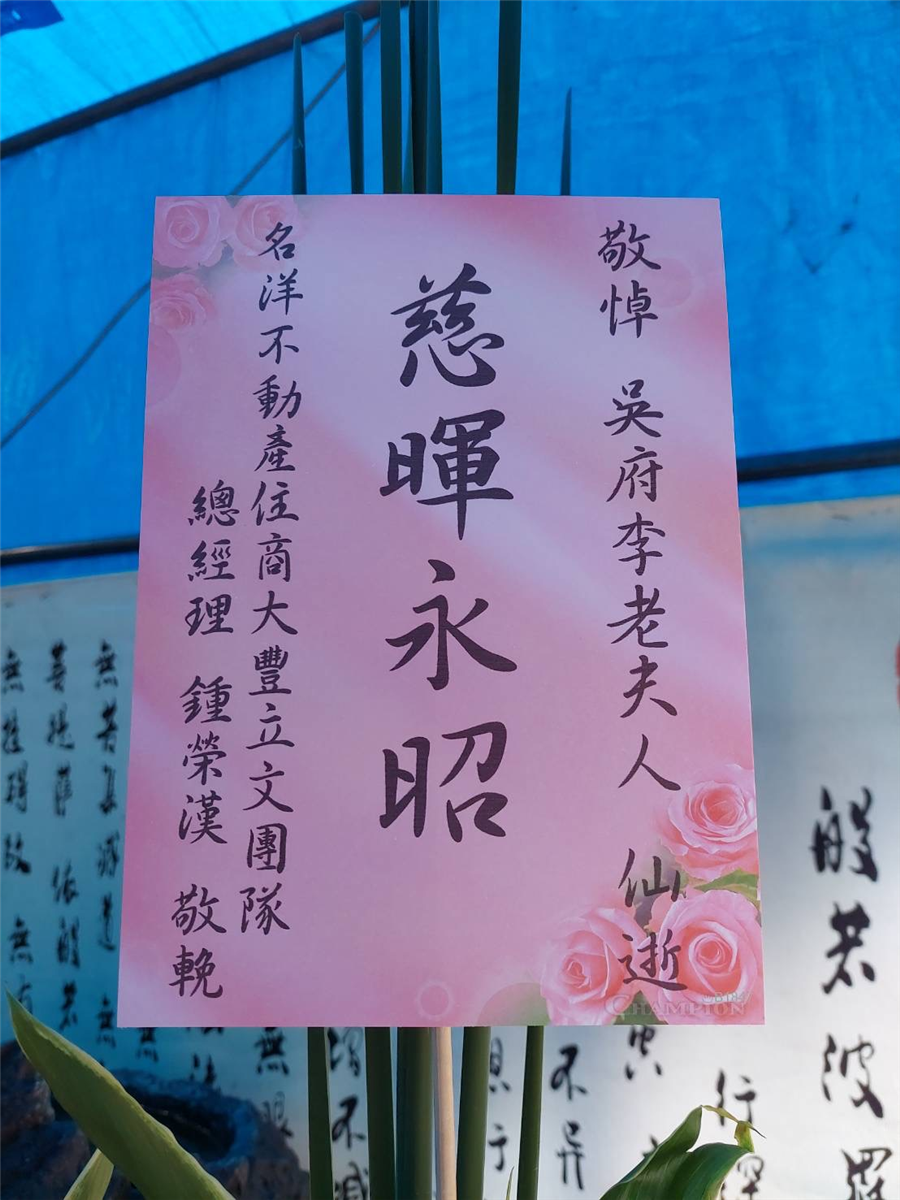 敬悼 吳府李老夫人 仙逝
慈暉永昭
名洋不動產住商大豐立文團隊
總經理 鍾榮漢 敬輓
CHAMPION
般若波羅
行深
不異
無苦集滅道 無
菩提薩 依般若
無罣礙故 無有